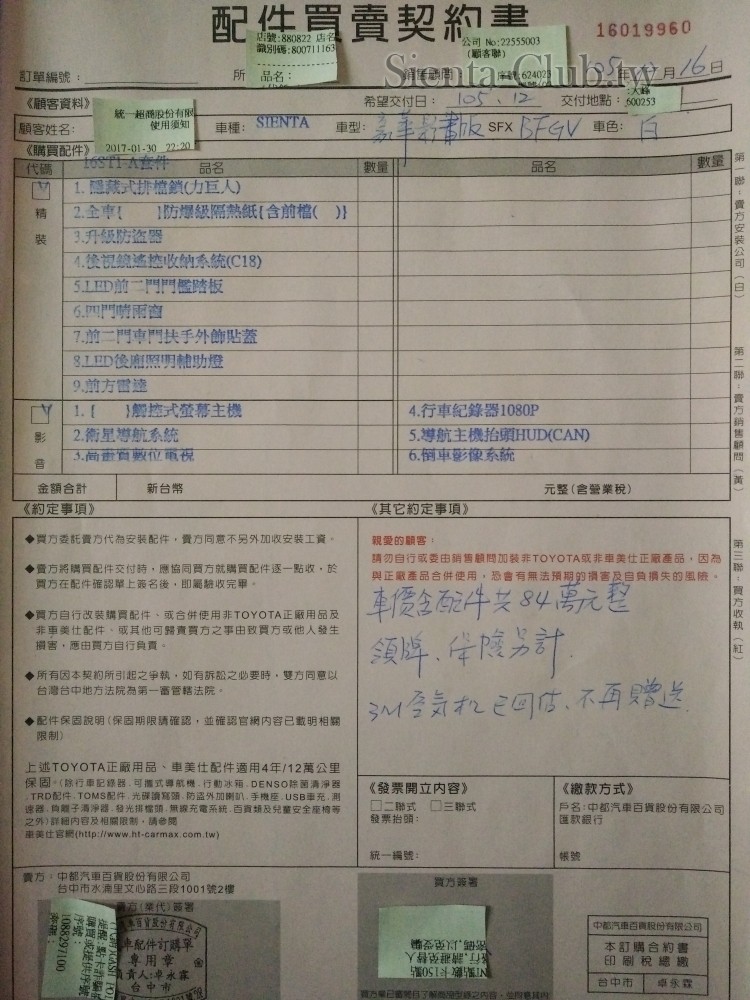 配件買賣契約書
16019960
店號:880822 店名
識別碼:800711163
品名:
公司 No:22555003
(顧客聯)
序號:624023
Sienta-Club.tw
訂單編號:
所
銷售顧問:
105年 月16日
《顧客資料》
希望交付日: 105.12
交付地點:
600253
統一超商股份有限
使用須知
2017-01-30 22:20
顧客姓名:
車種: SIENTA
車型: 豪華影音版
SFX
車色: 白
《購買配件》
16ST1-A套件
代碼 品名 數量 品名 數量
精裝
1. 隱藏式排檔鎖(力巨人)
2.全車{ }防爆級隔熱紙{含前檔( )}
3.升級防盜器
4.後視鏡遙控收納系統(C18)
5.LED前二門門檻踏板
6.四門晴雨窗
7.前二門車門扶手外飾貼蓋
8.LED後廂照明輔助燈
9.前方雷達
影音
1. { }觸控式螢幕主機
2.衛星導航系統
3.高畫質數位電視
4.行車紀錄器1080P
5.導航主機抬頭HUD(CAN)
6.倒車影像系統
金額合計 新台幣 元整(含營業稅)
《約定事項》
◆買方委託賣方代為安裝配件,賣方同意不另外加收安裝工資。
◆賣方將購買配件交付時,應協同買方就購買配件逐一點收,於
買方在配件確認單上簽名後,即屬驗收完畢。
◆買方自行改裝購買配件、或合併使用非TOYOTA正廠用品及
非車美仕配件、或其他可歸責買方之事由致買方或他人發生
損害,應由買方自行負責。
◆所有因本契約所引起之爭執,如有訴訟之必要時,雙方同意以
台灣台中地方法院為第一審管轄法院。
◆配件保固說明(保固期限請確認,並確認官網內容已載明相關
限制)
上述TOYOTA正廠用品、車美仕配件適用4年/12萬公里
保固。(除行車記錄器.可攜式導航機.行動冰箱.DENSO除菌清淨器
.TRD配件.TOMS配件.光碟讀寫頭.防盜外加喇叭.手機座.USB車充.測
速器.負離子清淨器.發光排檔頭.無線充電系統.百貨類及兒童安全座椅等
之外)詳細內容及相關限制,請參閱
車美仕官網(http://www.ht-carmax.com.tw)
《其它約定事項》
親愛的顧客:
請勿自行或委由銷售顧問加裝非TOYOTA或非車美仕正廠產品,因為
與正廠產品合併使用,恐會有無法預期的損害及自負損失的風險。
車價含配件共84萬元整
領牌、保險另計.
3M空氣機已回估、不再贈送.
《發票開立內容》
□二聯式 □三聯式
發票抬頭:
統一編號:
《繳款方式》
戶名:中都汽車百貨股份有限公司
匯款銀行
帳號
賣方:中都汽車百貨股份有限公司
台中市水湳里文心路三段1001號2樓
賣方(業代)簽署
車百貨股份有限公司
車配件訂購單
專用章
負責人:卓永霖
台中市
1088297100
買方簽署
中都汽車百貨股份有限公司
本訂購合約書
印刷稅總繳
台中市 卓永霖
第一聯:賣方安裝公司(白)
第二聯:賣方銷售顧問(黃)
第三聯:買方收執(紅)